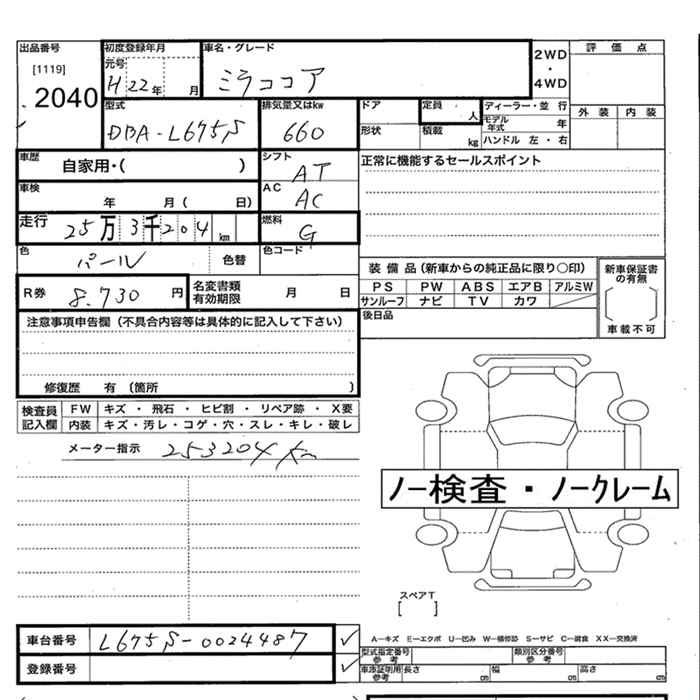 出品番号 初度登録年月 車名・グレード 2WD・4WD 評価点
[1119] 元号
2040 H 22年 月 ミラココア 外装 内装
型式 排気量又はkw ドア 定員 人 ディーラー・並 行
DBA-L675S 660 形状 積載 kg モデル年式 年
ハンドル 左・右
車歴 自家用・( ) シフト AT 正常に機能するセールスポイント
車検 年 月( 日) AC AC
走行 25万3千204 km 燃料 G
色 パール 色替 色コード
装備品(新車からの純正品に限り○印) 新車保証書の有無
PS PW ABS エアB アルミW
サンルーフ ナビ TV カワ
[ ] 車載不可
R券 8.730円 名変書類有効期限 月 日
後日品
注意事項申告欄(不具合内容等は具体的に記入して下さい)
修復歴 有(箇所 )
検査員記入欄 FW キズ・飛石・ヒビ割・リペア跡・X要
内装 キズ・汚レ・コゲ・穴・スレ・キレ・破レ
メーター指示 253204km
ノー検査・ノークレーム
スペアT
[ ]
車台番号 L675S-0024487 ✓
A—キズ E—エクボ U—凹み W—補修跡 S—サビ C—腐食 XX—交換済
型式指定番号 参考 類別区分番号 参考
登録番号 ✓
車庫証明用参考 長さ cm 幅 cm 高さ cm